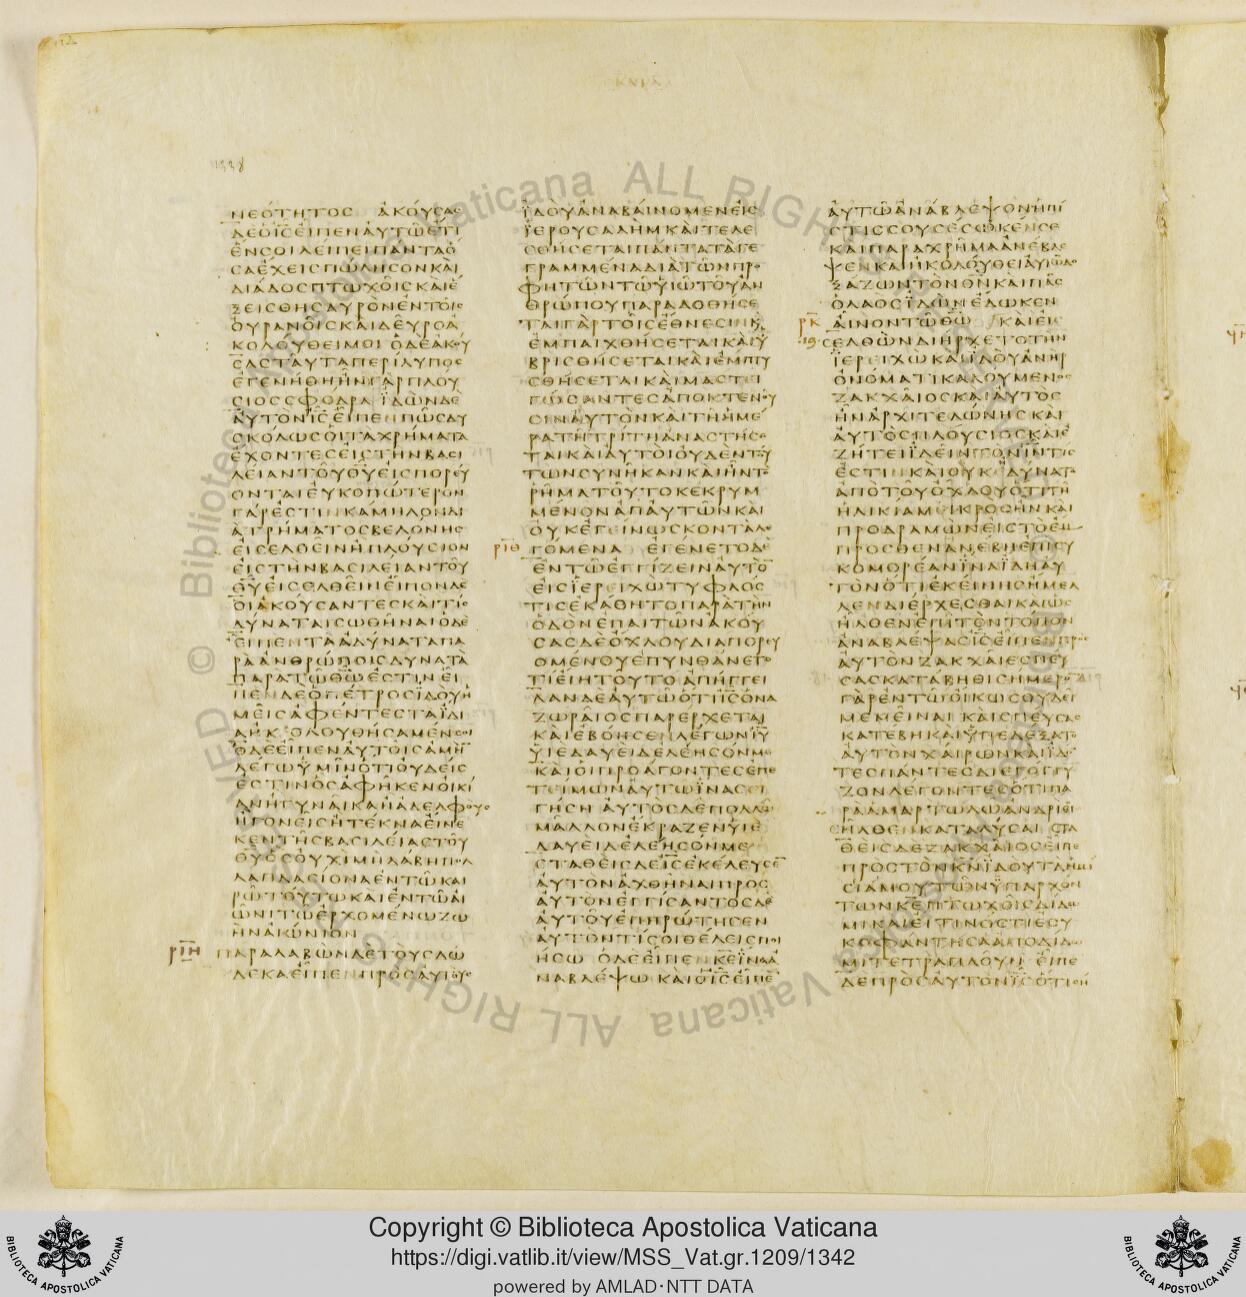 1338
ΝΕΟΤΗΤΟΣ ΑΚΟΥΣΑΣ
ΔΕΟΙΣΕΙΠΕΝΑΥΤΩΕΤΙ
ΕΝΣΟΙΛΕΙΠΕΙΠΑΝΤΑΟ
ΣΑΕΧΕΙΣΠΩΛΗΣΟΝΚΑΙ
ΔΙΑΔΟΣΠΤΩΧΟΙΣΚΑΙΕ
ΞΕΙΣΘΗΣΑΥΡΟΝΕΝΤΟΙΣ
ΟΥΡΑΝΟΙΣΚΑΙΔΕΥΡΟΑ
ΚΟΛΟΥΘΕΙΜΟΙ ΟΔΕΑΚΟΥ
ΣΑΣΤΑΥΤΑΠΕΡΙΛΥΠΟΣ
ΕΓΕΝΗΘΗΗΝΓΑΡΠΛΟΥ
ΣΙΟΣΣΦΟΔΡΑ ΙΔΩΝΔΕ
ΑΥΤΟΝΙΣΕΙΠΕΝΠΩΣΔΥ
ΣΚΟΛΩΣΟΙΤΑΧΡΗΜΑΤΑ
ΕΧΟΝΤΕΣΕΙΣΤΗΝΒΑΣΙ
ΛΕΙΑΝΤΟΥΘΥΕΙΣΠΟΡΕΥ
ΟΝΤΑΙΕΥΚΟΠΩΤΕΡΟΝ
ΓΑΡΕΣΤΙΝΚΑΜΗΛΟΝΔΙ
ΑΤΡΗΜΑΤΟΣΒΕΛΟΝΗΣ
ΕΙΣΕΛΘΕΙΝΗΠΛΟΥΣΙΟΝ
ΕΙΣΤΗΝΒΑΣΙΛΕΙΑΝΤΟΥ
ΘΥΕΙΣΕΛΘΕΙΝΕΙΠΟΝΔΕ
ΟΙΑΚΟΥΣΑΝΤΕΣΚΑΙΤΙΣ
ΔΥΝΑΤΑΙΣΩΘΗΝΑΙΟΔΕ
ΕΙΠΕΝΤΑΑΔΥΝΑΤΑΠΑ
ΡΑΑΝΘΡΩΠΟΙΣΔΥΝΑΤΑ
ΠΑΡΑΤΩΘΩΕΣΤΙΝΕΙ
ΠΕΝΔΕΟΠΕΤΡΟΣΙΔΟΥΗ
ΜΕΙΣΑΦΕΝΤΕΣΤΑΙΔΙ
ΑΗΚΟΛΟΥΘΗΣΑΜΕΝΣΟΙ
ΟΔΕΕΙΠΕΝΑΥΤΟΙΣΑΜΗ
ΛΕΓΩΥΜΙΝΟΤΙΟΥΔΕΙΣ
ΕΣΤΙΝΟΣΑΦΗΚΕΝΟΙΚΙ
ΑΝΗΓΥΝΑΙΚΑΗΑΔΕΛΦΟΥΣ
ΗΓΟΝΕΙΣΗΤΕΚΝΑΕΙΝΕ
ΚΕΝΤΗΣΒΑΣΙΛΕΙΑΣΤΟΥ
ΘΥΟΣΟΥΧΙΜΗΛΑΒΗΠΟΛ
ΛΑΠΛΑΣΙΟΝΑΕΝΤΩΚΑΙ
ΡΩΤΟΥΤΩΚΑΙΕΝΤΩΑΙ
ΩΝΙΤΩΕΡΧΟΜΕΝΩΖΩ
ΗΝΑΙΩΝΙΟΝ
ΡΙΗ ΠΑΡΑΛΑΒΩΝΔΕΤΟΥΣΔΩ
ΔΕΚΑΕΙΠΕΝΠΡΟΣΑΥΤΟΥΣ
ΙΔΟΥΑΝΑΒΑΙΝΟΜΕΝΕΙΣ
ΙΕΡΟΥΣΑΛΗΜΚΑΙΤΕΛΕ
ΣΘΗΣΕΤΑΙΠΑΝΤΑΤΑΓΕ
ΓΡΑΜΜΕΝΑΔΙΑΤΩΝΠΡΟ
ΦΗΤΩΝΤΩΥΙΩΤΟΥΑΝ
ΘΡΩΠΟΥΠΑΡΑΔΟΘΗΣΕ
ΤΑΙΓΑΡΤΟΙΣΕΘΝΕΣΙΝΚ
ΕΜΠΑΙΧΘΗΣΕΤΑΙΚΑΙΥ
ΒΡΙΣΘΗΣΕΤΑΙΚΑΙΕΜΠΤΥ
ΣΘΗΣΕΤΑΙΚΑΙΜΑΣΤΕΙ
ΓΩΣΑΝΤΕΣΑΠΟΚΤΕΝΟΥ
ΣΙΝΑΥΤΟΝΚΑΙΤΗΗΜΕ
ΡΑΤΗΤΡΙΤΗΑΝΑΣΤΗΣΕ
ΤΑΙΚΑΙΑΥΤΟΙΟΥΔΕΝΤΟΥ
ΤΩΝΣΥΝΗΚΑΝΚΑΙΗΝΤΟ
ΡΗΜΑΤΟΥΤΟΚΕΚΡΥΜ
ΜΕΝΟΝΑΠΑΥΤΩΝΚΑΙ
ΟΥΚΕΓΕΙΝΩΣΚΟΝΤΑΛΕ
ΡΙΘ ΓΟΜΕΝΑ ΕΓΕΝΕΤΟΔΕ
ΕΝΤΩΕΓΓΙΖΕΙΝΑΥΤΟ
ΕΙΣΙΕΡΕΙΧΩΤΥΦΛΟΣ
ΤΙΣΕΚΑΘΗΤΟΠΑΡΑΤΗΝ
ΟΔΟΝΕΠΑΙΤΩΝΑΚΟΥ
ΣΑΣΔΕΟΧΛΟΥΔΙΑΠΟΡΕΥ
ΟΜΕΝΟΥΕΠΥΝΘΑΝΕΤΟ
ΤΙΕΙΗΤΟΥΤΟ ΑΠΗΓΓΕΙ
ΛΑΝΔΕΑΥΤΩΟΤΙΙΣΟΝΑ
ΖΩΡΑΙΟΣΠΑΡΕΡΧΕΤΑΙ
ΚΑΙΕΒΟΗΣΕΝΛΕΓΩΝΙΥ
ΥΙΕΔΑΥΕΙΔΕΛΕΗΣΟΝΜΕ
ΚΑΙΟΙΠΡΟΑΓΟΝΤΕΣΕΠΕ
ΤΕΙΜΩΝΑΥΤΩΙΝΑΣΕΙ
ΓΗΣΗ ΑΥΤΟΣΔΕΠΟΛΛΩ
ΜΑΛΛΟΝΕΚΡΑΖΕΝΥΙΕ
ΔΑΥΕΙΔΕΛΕΗΣΟΝΜΕ
ΣΤΑΘΕΙΣΔΕΙΣΕΚΕΛΕΥΣΕ
ΑΥΤΟΝΑΧΘΗΝΑΙΠΡΟΣ
ΑΥΤΟΝΕΓΓΙΣΑΝΤΟΣΔΕ
ΑΥΤΟΥΕΠΗΡΩΤΗΣΕΝ
ΑΥΤΟΝΤΙΣΟΙΘΕΛΕΙΣΠΟΙ
ΗΣΩ ΟΔΕΕΙΠΕΝΚΕΙΝΑΑ
ΝΑΒΛΕΨΩ ΚΑΙΟΙΣΕΙΠΕ
ΑΥΤΩΑΝΑΒΛΕΨΟΝΗΠΙ
ΣΤΙΣΣΟΥΣΕΣΩΚΕΝΣΕ
ΚΑΙΠΑΡΑΧΡΗΜΑΑΝΕΒΛΕ
ΨΕΝΚΑΙΗΚΟΛΟΥΘΕΙΑΥΤΩΔΟ
ΞΑΖΩΝΤΟΝΘΝΚΑΙΠΑΣ
ΟΛΑΟΣΙΔΩΝΕΔΩΚΕΝ
ΡΚ ΑΙΝΟΝΤΩΘΩ ΚΑΙΕΙΣ
ΙΘ ΕΛΘΩΝΔΙΗΡΧΕΤΟΤΗΝ
ΙΕΡΕΙΧΩΚΑΙΙΔΟΥΑΝΗΡ
ΟΝΟΜΑΤΙΚΑΛΟΥΜΕΝΟΣ
ΖΑΚΧΑΙΟΣΚΑΙΑΥΤΟΣ
ΗΝΑΡΧΙΤΕΛΩΝΗΣΚΑΙ
ΑΥΤΟΣΠΛΟΥΣΙΟΣΚΑΙΕ
ΖΗΤΕΙΙΔΕΙΝΤΟΝΙΝΤΙΣ
ΕΣΤΙΝΚΑΙΟΥΚΕΔΥΝΑΤΟ
ΑΠΟΤΟΥΟΧΛΟΥΟΤΙΤΗ
ΗΛΙΚΙΑΜΕΙΚΡΟΣΗΝΚΑΙ
ΠΡΟΔΡΑΜΩΝΕΙΣΤΟΕΜ
ΠΡΟΣΘΕΝΑΝΕΒΗΕΠΙΣΥ
ΚΟΜΟΡΕΑΝΙΝΑΙΔΗΑΥ
ΤΟΝΟΤΙΕΚΕΙΝΗΣΗΜΕΛ
ΛΕΝΔΙΕΡΧΕΣΘΑΙΚΑΙΩΣ
ΗΛΘΕΝΕΠΙΤΟΝΤΟΠΟΝ
ΑΝΑΒΛΕΨΑΣΙΣΕΙΠΕΝΠΡΟΣ
ΑΥΤΟΝΖΑΚΧΑΙΕΣΠΕΥ
ΣΑΣΚΑΤΑΒΗΘΙΣΗΜΕΡΟΝ
ΓΑΡΕΝΤΩΟΙΚΩΣΟΥΔΕΙ
ΜΕΜΕΙΝΑΙ ΚΑΙΣΠΕΥΣΑΣ
ΚΑΤΕΒΗΚΑΙΥΠΕΔΕΞΑΤΟ
ΑΥΤΟΝΧΑΙΡΩΝΚΑΙΙΔΟ
ΤΕΣΠΑΝΤΕΣΔΙΕΓΟΓΓΥ
ΖΟΝΛΕΓΟΝΤΕΣΟΤΙΠΑ
ΡΑΑΜΑΡΤΩΛΩΑΝΔΡΙΕΙ
ΣΗΛΘΕΝΚΑΤΑΛΥΣΑΙ ΣΤΑ
ΘΕΙΣΔΕΖΑΚΧΑΙΟΣΕΙΠΕ
ΠΡΟΣΤΟΝΚΝΙΔΟΥΤΑΗΜΙ
ΣΙΑΜΟΥΤΩΝΥΠΑΡΧΟΝ
ΤΩΝΚΕΠΤΩΧΟΙΣΔΙΔΩ
ΜΙΚΑΙΕΙΤΙΝΟΣΤΙΕΣΥ
ΚΟΦΑΝΤΗΣΑΑΠΟΔΙΔΩ
ΜΙΤΕΤΡΑΠΛΟΥΝ ΕΙΠΕ
ΔΕΠΡΟΣΑΥΤΟΝΙΣΟΤΙΣΗ
Copyright © Biblioteca Apostolica Vaticana
https://digi.vatlib.it/view/MSS_Vat.gr.1209/1342
powered by AMLAD·NTT DATA